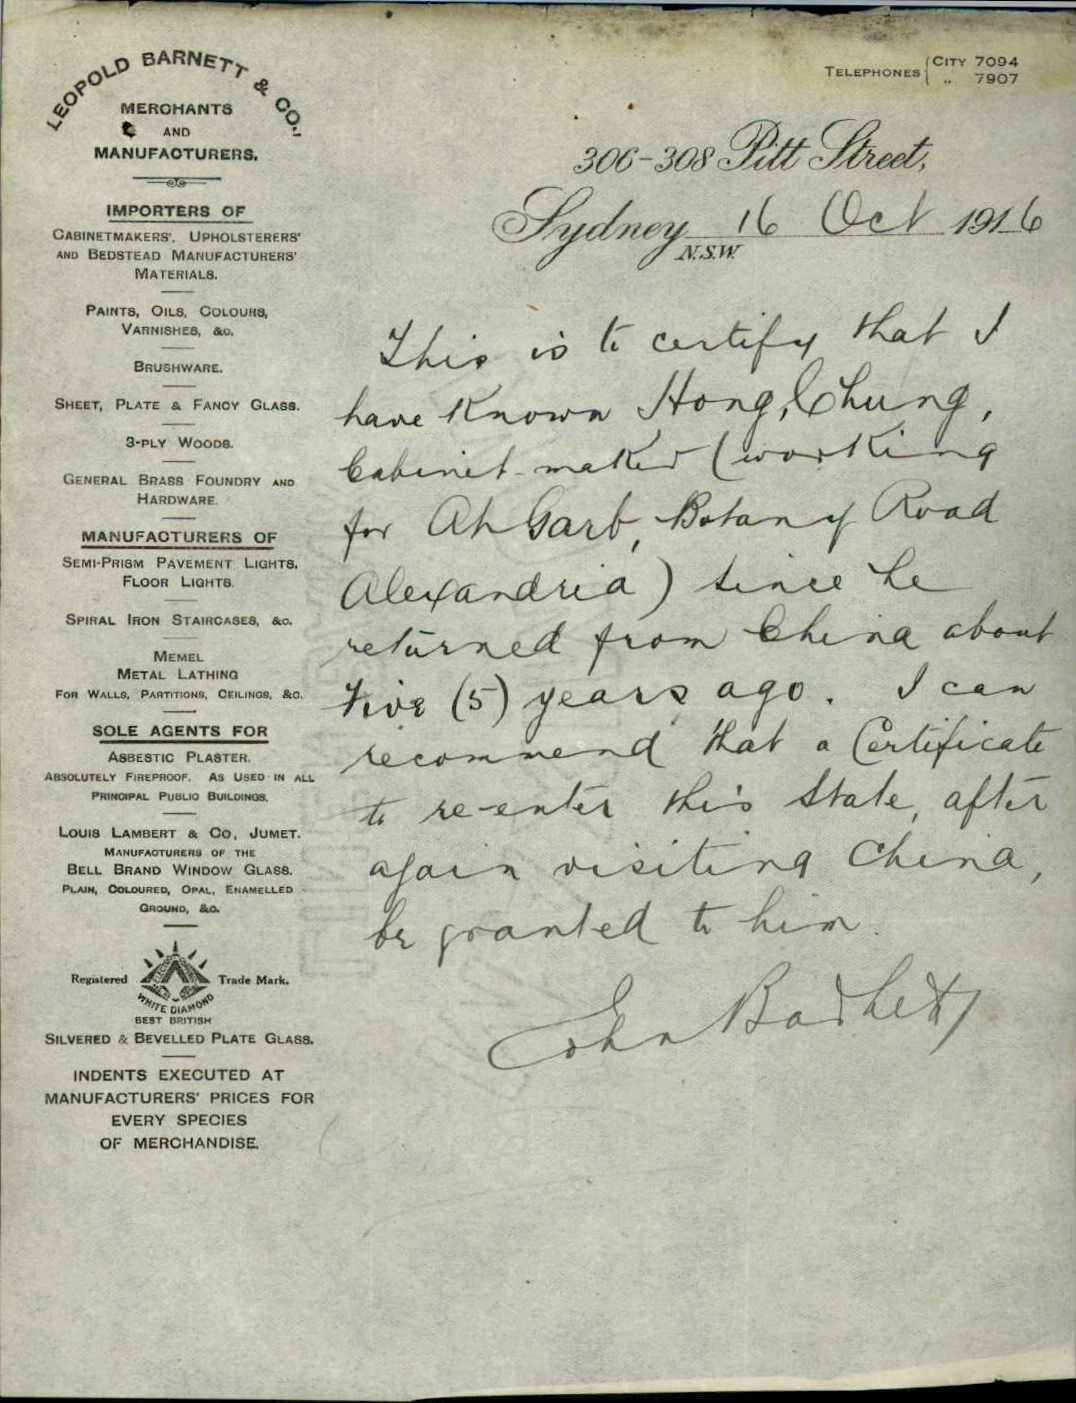 LEOPOLD BARNETT & CO.
MERCHANTS
AND
MANUFACTURERS.
IMPORTERS OF
CABINETMAKERS', UPHOLSTERERS'
AND BEDSTEAD MANUFACTURERS'
MATERIALS.
PAINTS, OILS, COLOURS,
VARNISHES, &c.
BRUSHWARE.
SHEET, PLATE & FANCY GLASS.
3-PLY WOODS.
GENERAL BRASS FOUNDRY AND
HARDWARE.
MANUFACTURERS OF
SEMI-PRISM PAVEMENT LIGHTS.
FLOOR LIGHTS.
SPIRAL IRON STAIRCASES, &c.
MEMEL
METAL LATHING
FOR WALLS, PARTITIONS, CEILINGS, &c.
SOLE AGENTS FOR
ASBESTIC PLASTER.
ABSOLUTELY FIREPROOF. AS USED IN ALL
PRINCIPAL PUBLIC BUILDINGS.
LOUIS LAMBERT & CO, JUMET.
MANUFACTURERS OF THE
BELL BRAND WINDOW GLASS.
PLAIN, COLOURED, OPAL, ENAMELLED
GROUND, &c.
Registered Trade Mark.
WHITE DIAMOND
BEST BRITISH
SILVERED & BEVELLED PLATE GLASS.
INDENTS EXECUTED AT
MANUFACTURERS' PRICES FOR
EVERY SPECIES
OF MERCHANDISE.
TELEPHONES CITY 7094
" 7907
306-308 Pitt Street,
Sydney 16 Oct 1916
N.S.W.
This is to certify that I
have known Hong Chung,
Cabinet-maker (working
for Ah Garb, Botany Road
Alexandria) since he
returned from China about
five (5) years ago. I can
recommend that a Certificate
to re-enter this State, after
again visiting China,
be granted to him.
John